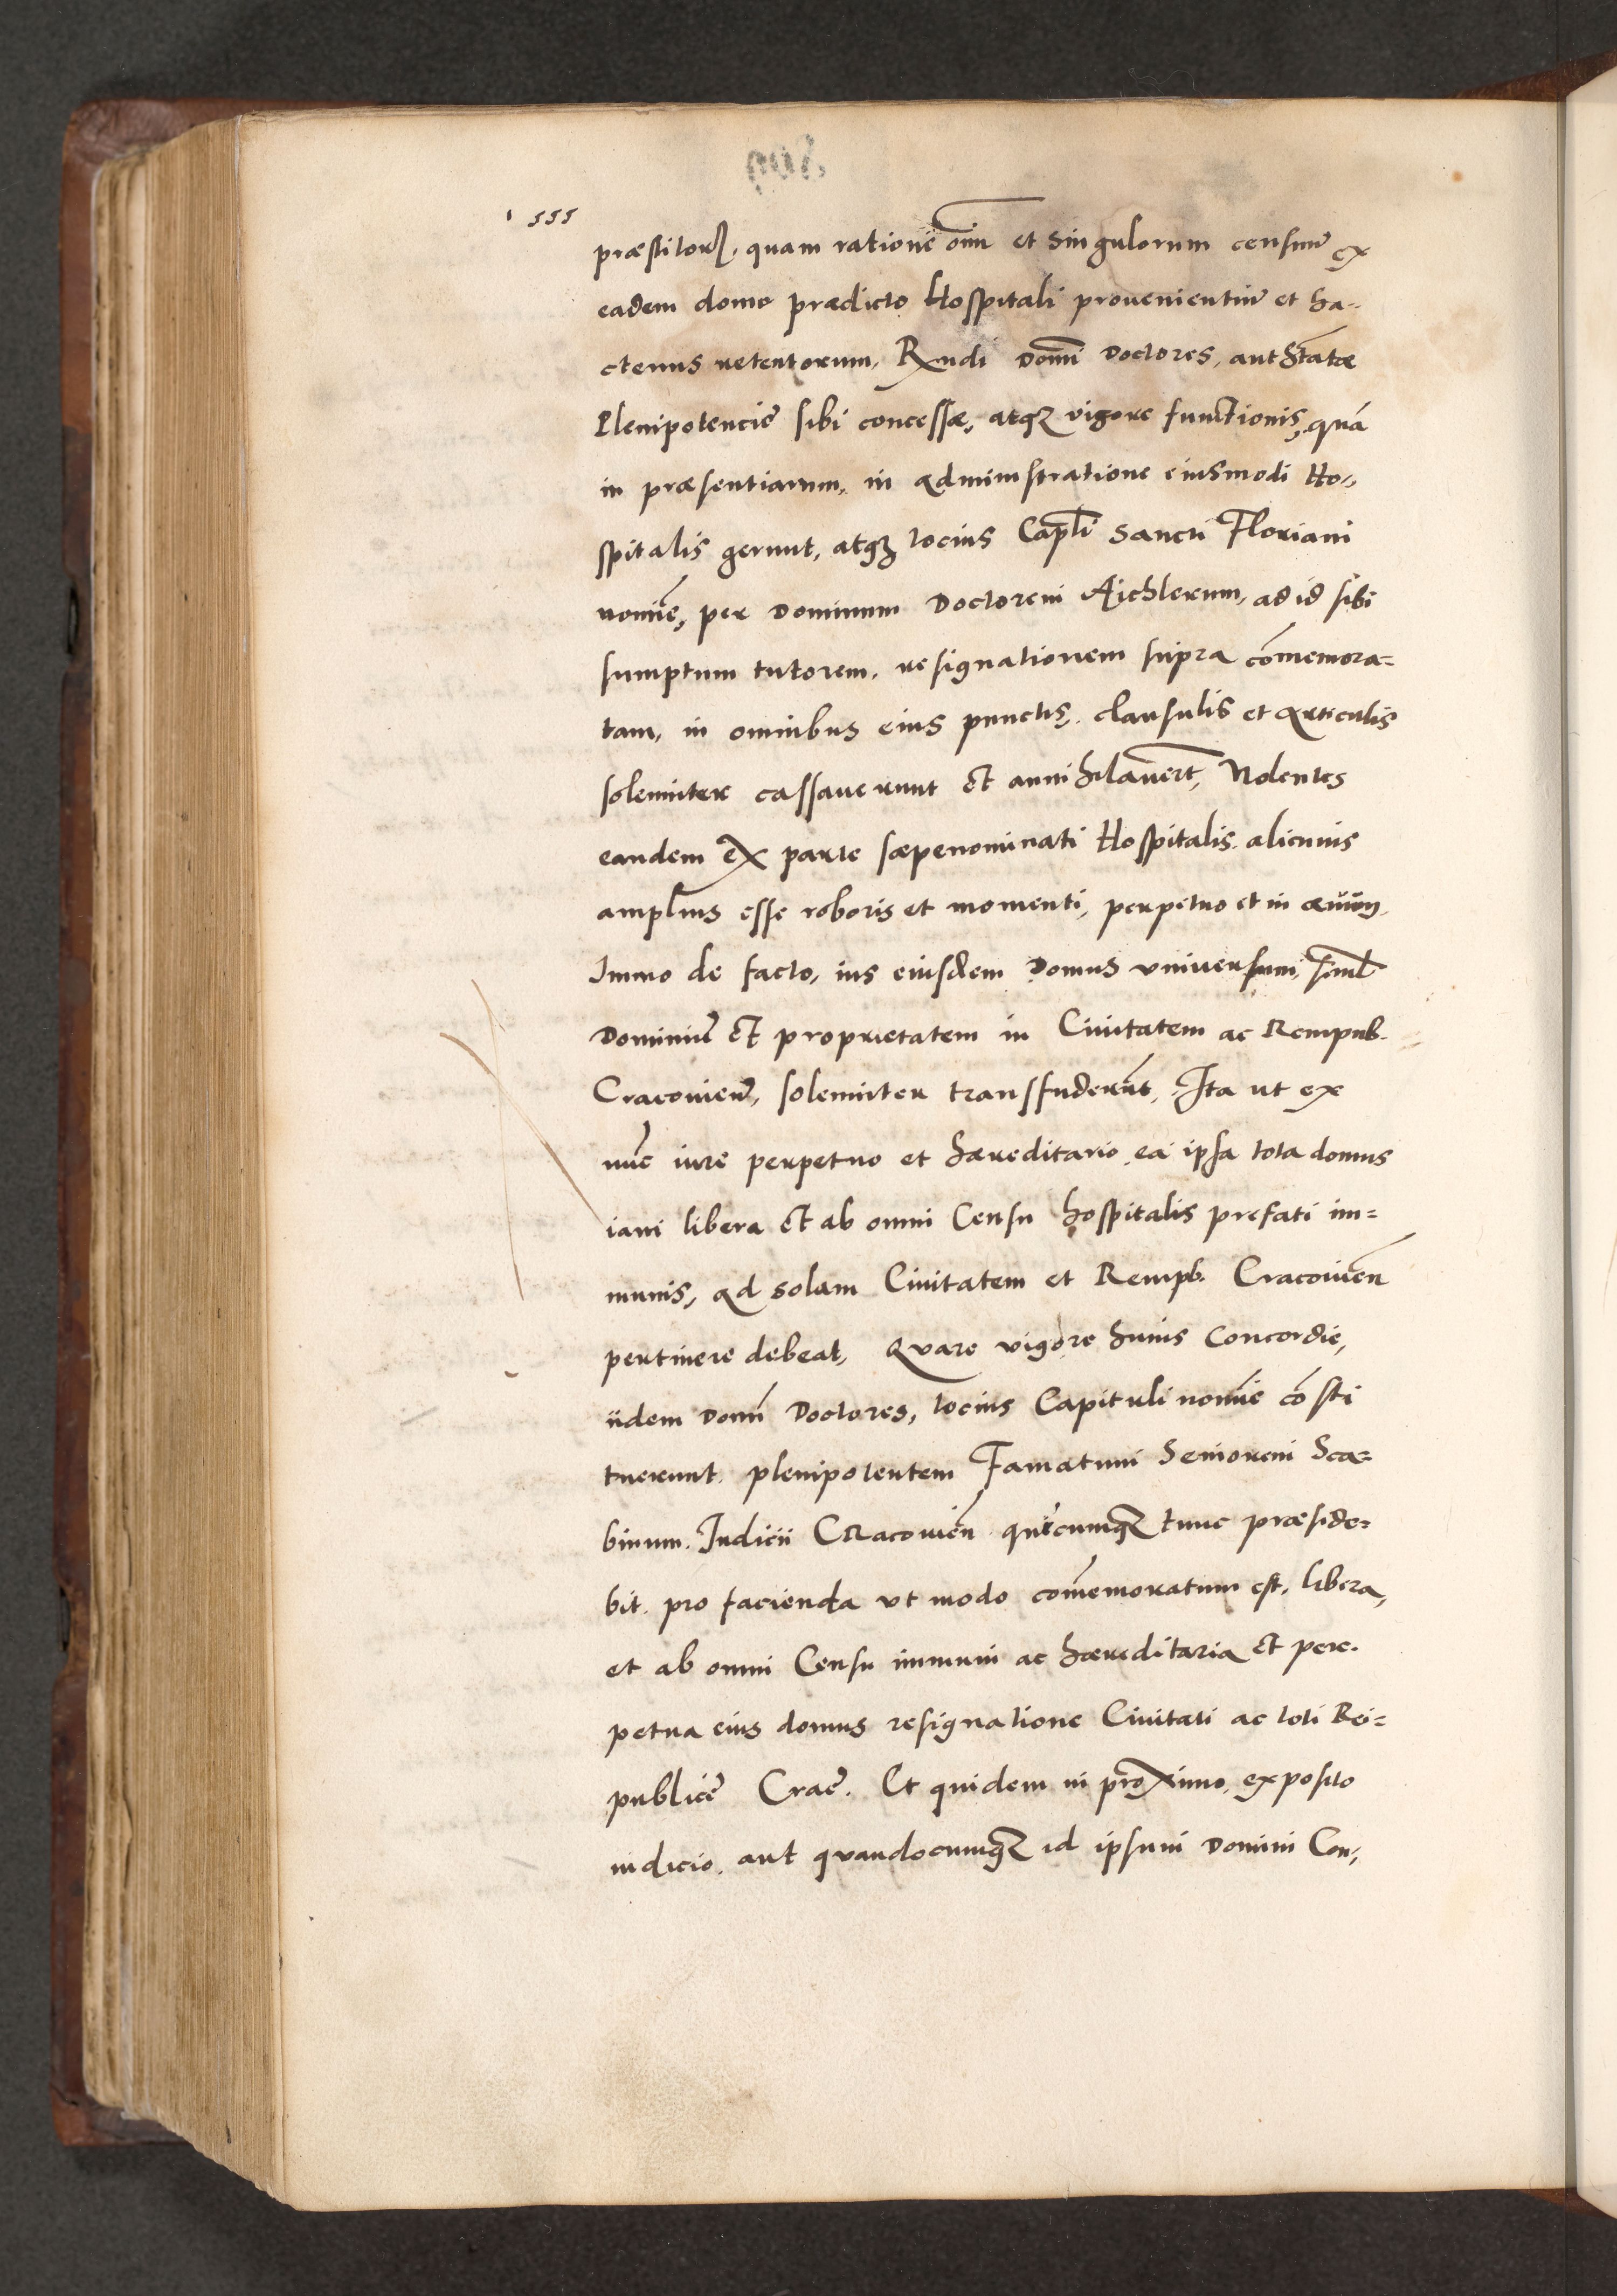 555
præstitorꝝ, quam ratione om̃ium et singulorum censuũ ex
eadem domo prædicto Hospitali prouenientiũ et ha-
ctenus retentorum, Rẽndi Domĩ Doctores, auth̃tatæ
Plenipotencie sibi concessæ, atqꝫ vigore functionis, quã
in præsentiarum, in administratione eiusmodi Ho-
spitalis gerunt, atqꝫ tocius Capl̃i Sancti Floriani
nomĩe, per Dominum Doctorem Aichlerum, ad id sibi
sumptum tutorem, resignationem supra cõmemora=
tam, in omnibus eius punctis, clausulis et articulis
solemniter cassauerunt et annihilauer̃t, Nolentes
eandem ex parte sæpenominati Hospitalis alicuius
amplius esse roboris et momenti, perpetuo et in æuum,
Immo de facto, ius eiusdem Domus vniuersum, siml̃
Dominiũ et proprietatem in Ciuitatem ac Rempub.
Cracouieñ, solemniter transfuderũt, Ita ut ex
nũc iure perpetuo et hæreditario ea ipsa tota domus
iam libera et ab omni Censu hospitalis prefati im=
munis, ad solam Ciuitatem et Rempb. Cracouieñ
pertinere debeat, Quare vigore huius Concordie,
iidem Domĩ Doctores, tocius Capituli nomĩe cõsti
tuerunt plenipotentem Famatum Seniorem Sca=
binum Iudicii Cracouieñ quicumqꝫ tunc præside=
bit pro facienda vt modo com̃emoratum est, libera,
et ab omni Censu immuni ac hæreditaria et per-
petua eius domus resignatione Ciuitati ac toti Rei=
publice Crac̃. Et quidem in proximo, exposito
iudicio aut quandocumqꝫ id ipsum Domini Con-